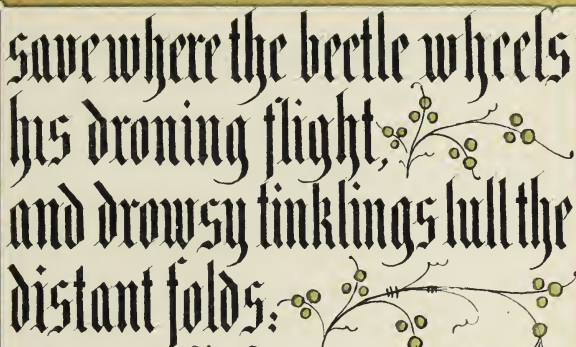 save where the beetle wheels
his droning flight,
and drowsy tinklings lull the
distant folds: